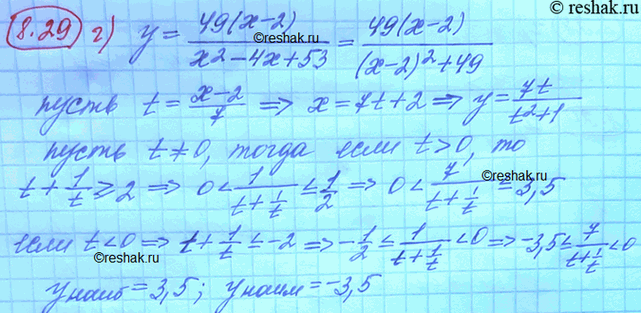 © reshak.ru
8.29 г) y = 49(x-2) / x²-4x+53 = 49(x-2) / (x-2)²+49
©reshak.ru
пусть t = x-2 / 7 ⇒ x = 7t+2 ⇒ y = 7t / t²+1
пусть t ≠ 0, тогда если t > 0, то
t + 1/t ≥ 2 ⇒ 0 < 1 / t+1/t ≤ 1/2 ⇒ 0 < 7 / t+1/t = 3,5
если t < 0 ⇒ t + 1/t ≤ -2 ⇒ -1/2 ≤ 1 / t+1/t < 0 ⇒ -3,5 ≤ 7 / t+1/t < 0
©reshak.ru
©reshak.ru
y наиб = 3,5; y наим = -3,5